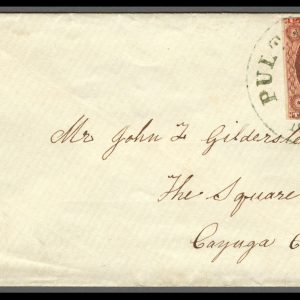 PULT
Mr John F Gildersle
The Square
Cayuga C